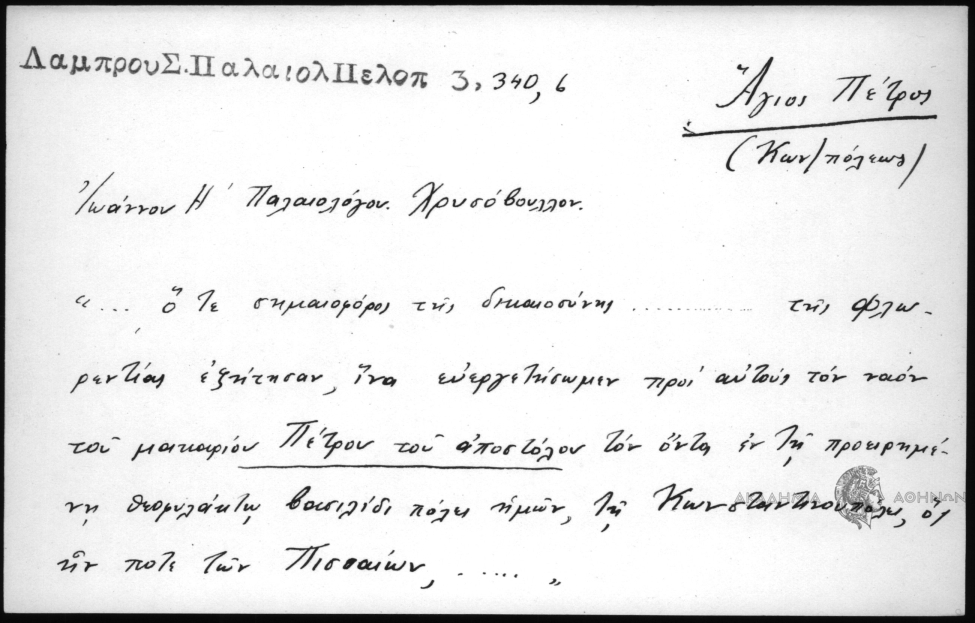 ΛαμπρουΣ.ΠαλαιολΠελοπ 3, 340, 6
Ἅγιος Πέτρος
(Κων/πόλεως)
Ἰωάννου Η' Παλαιολόγου. Χρυσόβουλλον.
"... ὅ τε σημαιοφόρος τῆς δικαιοσύνης ............ τῆς Φλω-
ρεντίας ἐξήτησαν, ἵνα εὐεργετήσωμεν πρὸς αὐτοὺς τὸν ναὸν
τοῦ μακαρίου Πέτρου τοῦ ἀποστόλου τὸν ὄντα ἐν τῇ προειρημέ-
νῃ θεοφυλάκτῳ βασιλίδι πόλει ἡμῶν, τῇ Κωνσταντινουπόλει, ὃς
ἦν ποτε τῶν Πισσαίων, ..... "
ΑΚΑΔΗΜΙΑ ΑΘΗΝΩΝ